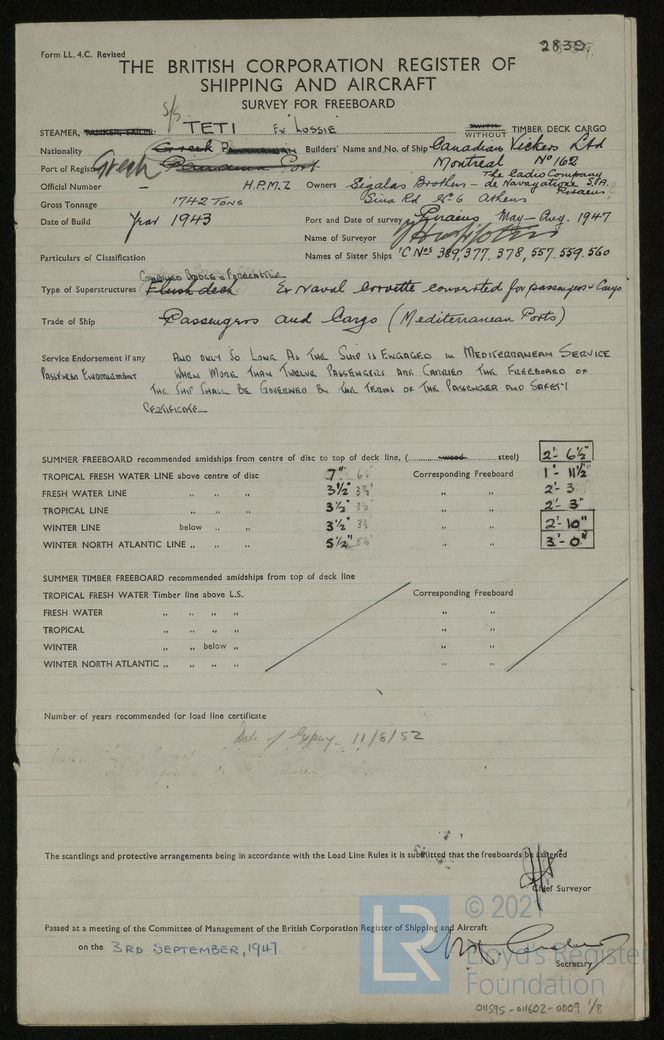 Form LL. 4.C. Revised
2839
THE BRITISH CORPORATION REGISTER OF
SHIPPING AND AIRCRAFT
SURVEY FOR FREEBOARD
S/S
STEAMER, TANKER, SAILER: TETI Ex "LOSSIE" WITH WITHOUT TIMBER DECK CARGO
Nationality Greek Builders' Name and No. of Ship Canadian Vickers Ltd
Port of Registry Greek Panama Port Montreal No 162
Official Number – H.P.M.Z Owners Sigalas Brothers – The Ladio Company de Navagatione S.P.A. Piraeus
Gross Tonnage 1742 TONS Sina Rd No 6 Athens
Date of Build Year 1943 Port and Date of survey Pyraeus May – Aug. 1947
Name of Surveyor
Particulars of Classification Names of Sister Ships "C.Nos 389, 377, 378, 557. 559. 560
COMBINED BRIDGE & FORECASTLE
Type of Superstructures Flush deck Ex Naval Corvette converted for passengers & Cargo
Trade of Ship Passengers and Cargo (Mediterranean Ports)
Service Endorsement if any AND ONLY SO LONG AS THE SHIP IS ENGAGED IN MEDITERRANEAN SERVICE
PASSENGER ENDORSEMENT WHEN MORE THAN TWELVE PASSENGERS ARE CARRIED THE FREEBOARD OF
THE SHIP SHALL BE GOVERNED BY THE TERMS OF THE PASSENGER AND SAFETY
CERTIFICATE
SUMMER FREEBOARD recommended amidships from centre of disc to top of deck line, (.......... wood .......... steel) 2'- 6½"
TROPICAL FRESH WATER LINE above centre of disc 7" 6½ Corresponding Freeboard 1'- 11½"
FRESH WATER LINE „ „ „ 3½" 3½ „ „ 2'- 3
TROPICAL LINE „ „ „ 3½" 3½ „ „ 2'- 3"
WINTER LINE below „ „ 3½" 3½ „ „ 2'- 10"
WINTER NORTH ATLANTIC LINE „ „ „ 5½" 5½ „ „ 3'- 0"
SUMMER TIMBER FREEBOARD recommended amidships from top of deck line
TROPICAL FRESH WATER Timber line above L.S. Corresponding Freeboard
FRESH WATER „ „ „ „ „ „
TROPICAL „ „ „ „ „ „
WINTER „ „ below „ „ „
WINTER NORTH ATLANTIC „ „ „ „ „ „
Number of years recommended for load line certificate
Date of Expiry. 11/8/52
The scantlings and protective arrangements being in accordance with the Load Line Rules it is submitted that the freeboards be assigned
Chief Surveyor
Passed at a meeting of the Committee of Management of the British Corporation Register of Shipping and Aircraft
on the 3RD SEPTEMBER, 1947.
Secretary
LR
© 2021
Lloyd's Register
Foundation
011595-011602-0009 1/8